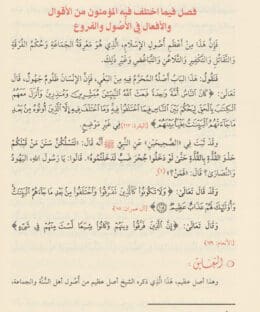 فصل فيما اختلف فيه المؤمنون من الأقوال
والأفعال في الأصول والفروع
فَإِنَّ هَذَا مِنْ أَعْظَمِ أُصُولِ الإِسْلَامِ، الَّذِي هُوَ مَعْرِفَةُ الجَمَاعَةِ وَحُكْمُ الفُرْقَةِ
وَالتَّقَاتُلِ وَالتَّكْفِيرِ وَالتَّلَاعُنِ وَالتَّبَاغُضِ وَغَيْرِ ذَلِكَ.
فَنَقُولُ: هَذَا البَابُ أَصْلُهُ المُحَرَّمُ فِيهِ مِنَ البَغْيِ، فَإِنَّ الإِنْسَانَ ظَلُومٌ جَهُولٌ، قَالَ
تَعَالَى: ﴿كَانَ النَّاسُ أُمَّةً وَاحِدَةً فَبَعَثَ اللَّهُ النَّبِيِّينَ مُبَشِّرِينَ وَمُنذِرِينَ وَأَنزَلَ مَعَهُمُ
الْكِتَابَ بِالْحَقِّ لِيَحْكُمَ بَيْنَ النَّاسِ فِيمَا اخْتَلَفُوا فِيهِ وَمَا اخْتَلَفَ فِيهِ إِلَّا الَّذِينَ أُوتُوهُ مِن بَعْدِ
مَا جَاءَتْهُمُ الْبَيِّنَاتُ بَغْيًا بَيْنَهُمْ﴾ [البقرة: ٢١٣] فِي غَيْرِ مَوْضِعٍ.
وَقَدْ ثَبَتَ فِي «الصَّحِيحَيْنِ» عَنِ النَّبِيِّ ﷺ أَنَّهُ قَالَ: «لَتَسْلُكُنَّ سَنَنَ مَنْ قَبْلَكُمْ
حَذْوَ القُذَّةِ بِالقُذَّةِ حَتَّى لَوْ دَخَلُوا جُحْرَ ضَبٍّ لَدَخَلْتُمُوهُ». قَالُوا: يَا رَسُولَ اللهِ، اليَهُودُ
وَالنَّصَارَى؟ قَالَ: «فَمَنْ؟».
وَقَدْ قَالَ تَعَالَى: ﴿وَلَا تَكُونُوا كَالَّذِينَ تَفَرَّقُوا وَاخْتَلَفُوا مِن بَعْدِ مَا جَاءَهُمُ الْبَيِّنَاتُ
وَأُولَئِكَ لَهُمْ عَذَابٌ عَظِيمٌ﴾ [آل عمران: ١٠٥]
وَقَالَ تَعَالَى: ﴿إِنَّ الَّذِينَ فَرَّقُوا دِينَهُمْ وَكَانُوا شِيَعًا لَسْتَ مِنْهُمْ فِي شَيْءٍ﴾
[الأنعام: ١٥٩]
التعليق
وهذا أصل عظيم، هَذَا الَّذي ذكره الشيخ أصل عظيم من أصول أهل السُّنَّة والجماعة،